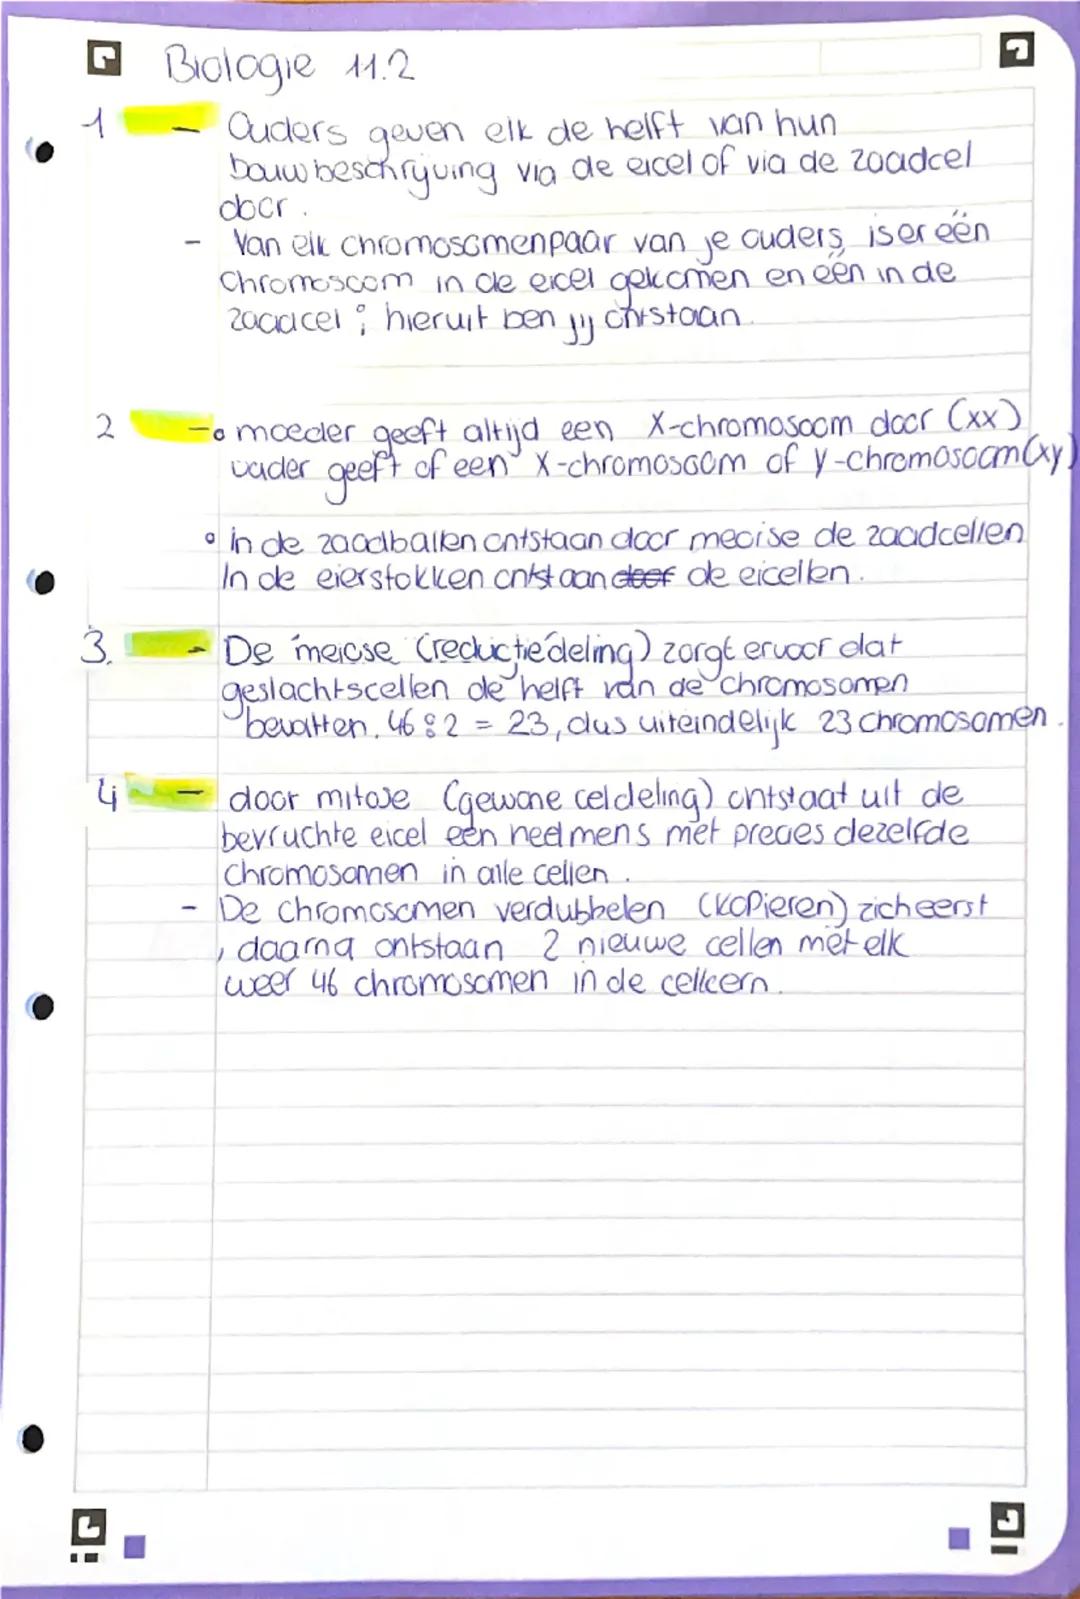 Biologie 11.2
1 - Ouders geven elk de helft van hun
bouwbeschrijving via de eicel of via de zaadcel
door.
- Van elk chromosomenpaar van je ouders is er één
chromosoom in de eicel gekomen en één in de
zaadcel ; hieruit ben jij ontstaan.
2 - moeder geeft altijd een X-chromosoom door (xx)
vader geeft of een X-chromosoom of y-chromosoom (xy)
in de zaadballen ontstaan door meoise de zaadcellen
In de eierstokken ontstaan door de eicellen.
3. - De meiose (reductiedeling) zorgt ervoor dat
geslachtscellen de helft van de chromosomen
bevatten. 46 : 2 = 23, dus uiteindelijk 23 chromosomen.
4 - door mitose (gewone celdeling) ontstaat uit de
bevruchte eicel een heel mens met precies dezelfde
chromosomen in alle cellen.
- De chromosomen verdubbelen (kopieren) zich eerst
, daarna ontstaan 2 nieuwe cellen met elk
weer 46 chromosomen in de celkern.